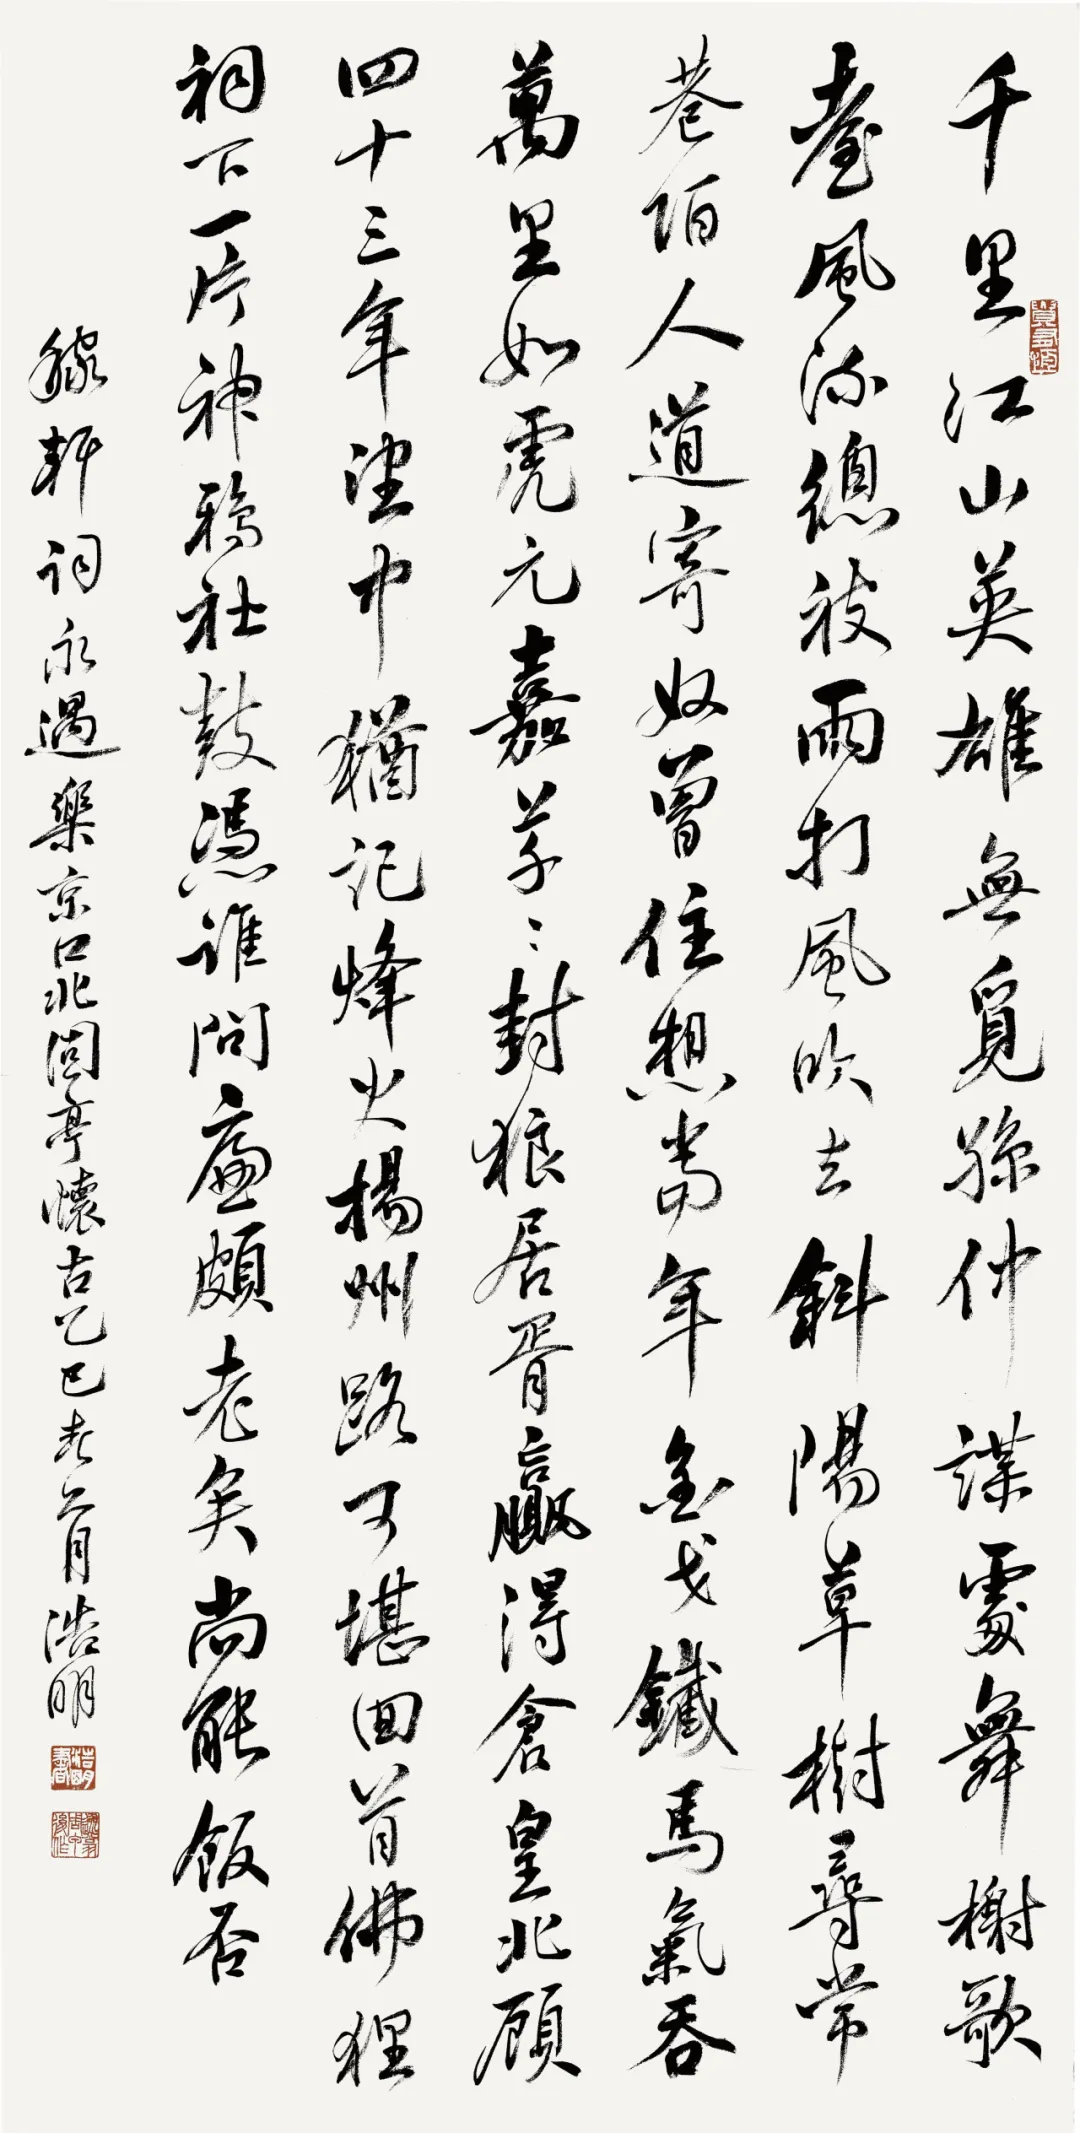 千里江山英雄無覓孫仲謀處舞榭歌
臺風流總被雨打風吹去斜陽草樹尋常
巷陌人道寄奴曾住想當年金戈鐵馬氣吞
萬里如虎元嘉草〻封狼居胥贏得倉皇北顧
四十三年望中猶記烽火楊州路可堪回首佛狸
祠下一片神鴉社鼓憑誰問廉頗老矣尚能飯否
稼軒詞永遇樂京口北固亭懷古乙巳春月浩明
浩明書